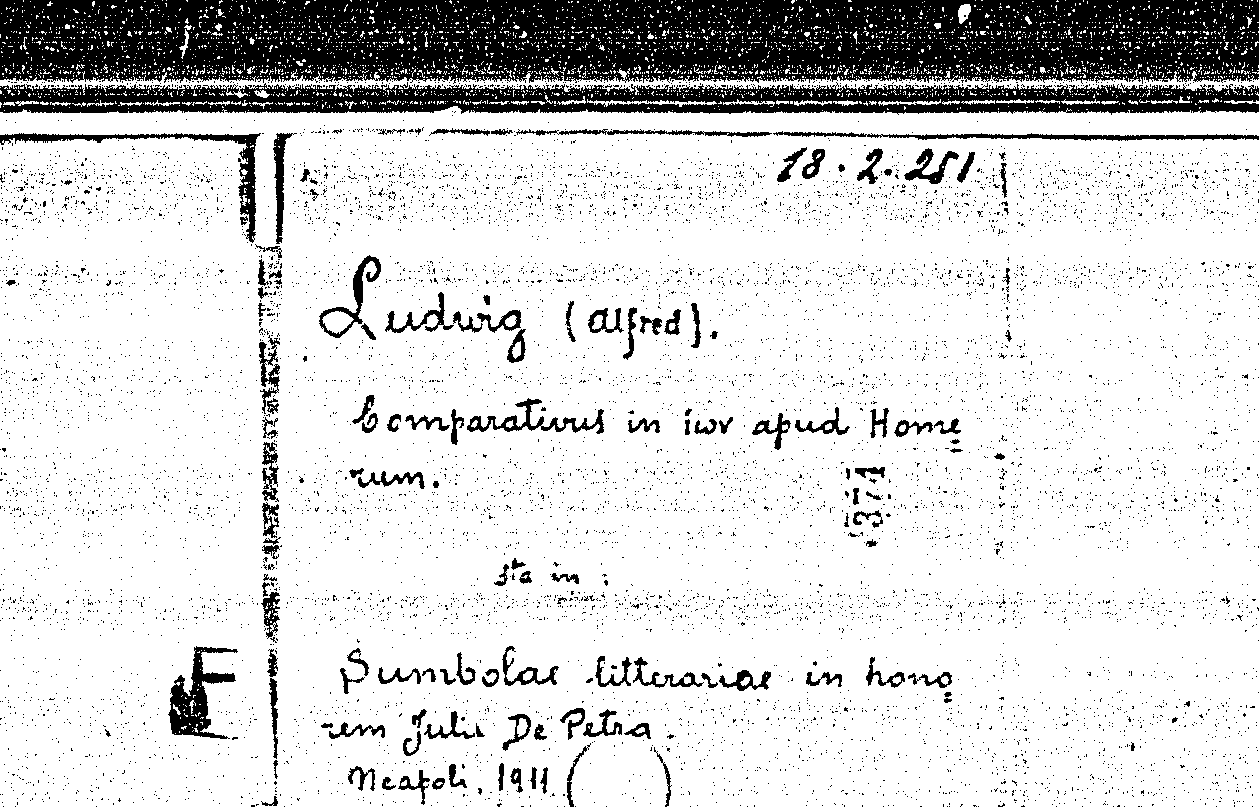 18.2.251
Ludwig (Alfred).
Comparativus in ιων apud Home=
rum.
374
sta in :
Sumbolae litterariae in hono=
rem Julii De Petra.
Neapoli, 1911